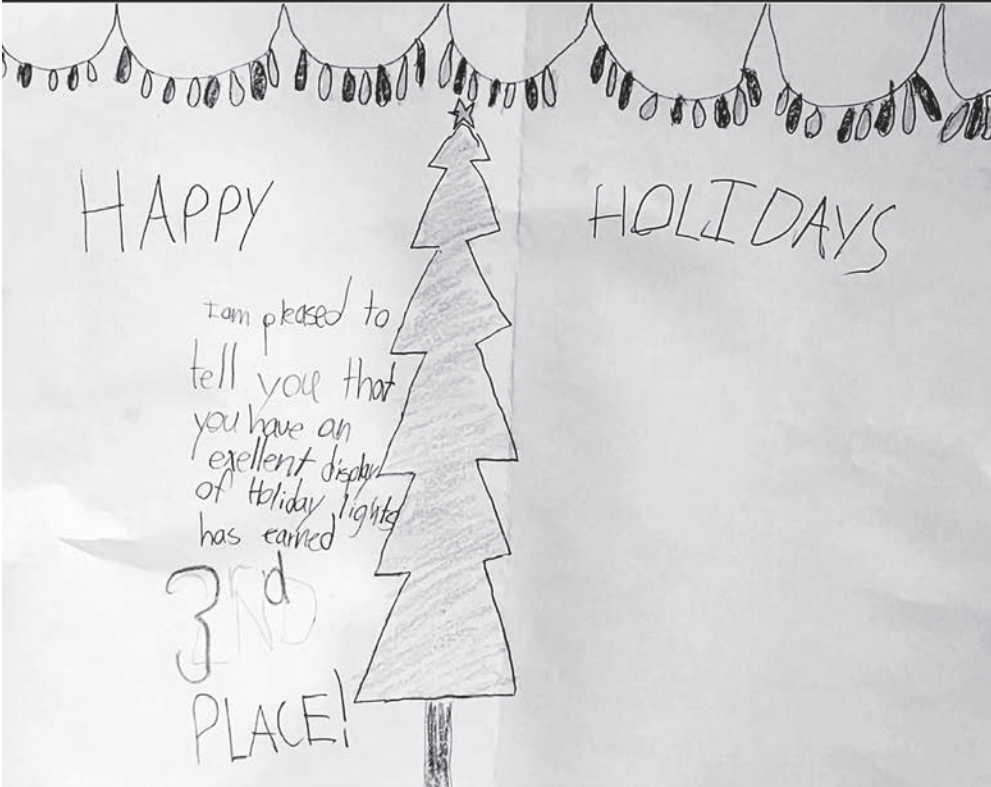 HAPPY HOLIDAYS
I am pleased to
tell you that
you have an
exellent display
of Holiday lights
has earned
3rd
PLACE!